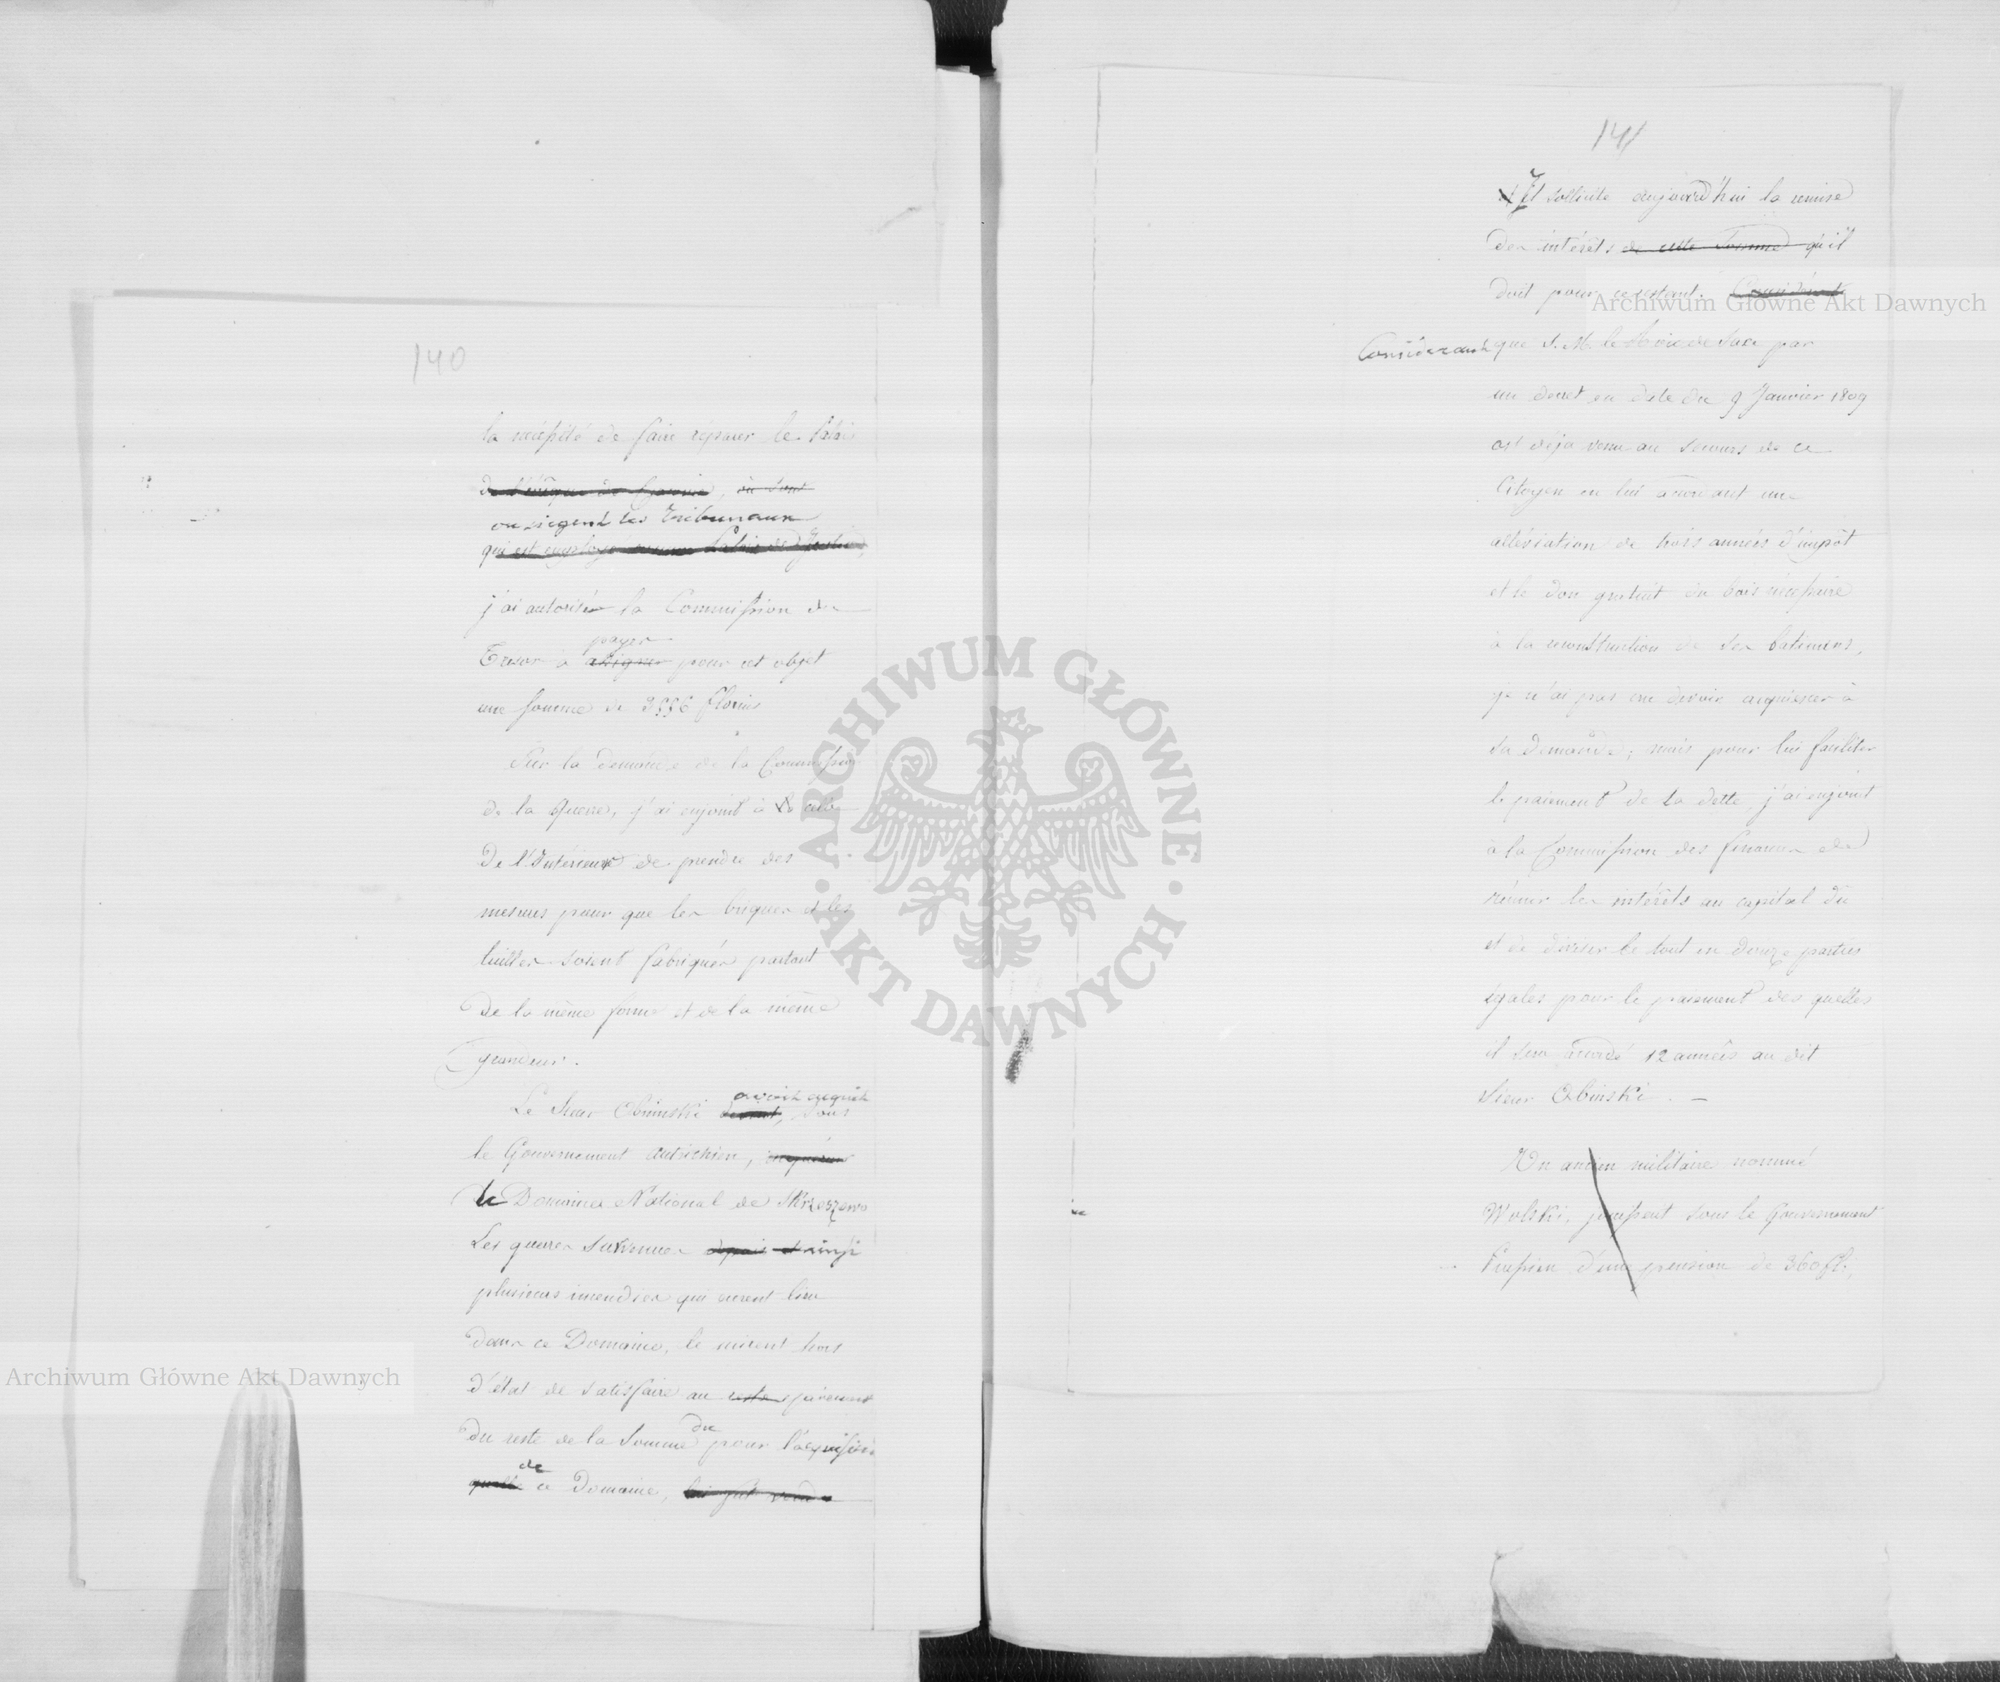 140
la nécessité de faire réparer le Palais
de l'évêque de Cracovie, où sont
où siègent les Tribunaux
qui est employé comme Palais de Justice,
j'ai autorisé la Commission du
Trésor à payer
assigner pour cet objet
une somme de 3556 florins
Sur la demande de la Commission
de la Guerre, j'ai enjoint à celle
de l'Intérieur de prendre des
mesures pour que les briques et les
tuilles soient fabriquées partout
de la même forme et de la même
grandeur.
Le Sieur Obinski avait acquis
devint, sous
le Gouvernement autrichien, acquéreur
le Domaine National de Skrzeszewo
Les guerres survenues depuis et ainsi
plusieurs incendies qui eurent lieu
dans ce Domaine, le mirent hors
d'état de satisfaire au reste paiement
du reste de la Somme due pour l'acquisition
de ce Domaine, lui fut vendu
141
Il sollicite aujourd'hui la remise
des intérêts de cette Somme qu'il
doit pour ce restant. Considérant
Considerant que S. M. le Roi de Saxe par
un decret en date du 9 Janvier 1809
est déja venu au secours de ce
Citoyen en lui accordant une
alléviation de trois années d'impôt
et le don gratuit du bois nécessaire
à la reconstruction de ses batimens,
je n'ai pas cru devoir acquiescer à
sa demande; mais pour lui faciliter
le paiement de sa dette, j'ai enjoint
à la Commission des finances de
réunir les intérêts au capital dû
et de diviser le tout en douze parties
égales pour le paiement des quelles
il sera accordé 12 années au dit
Sieur Obinski. —
Un ancien militaire nommé
Wolski, jouissant sous le Gouvernement
Prussien d'une pension de 360 fl.
Archiwum Główne Akt Dawnych
Archiwum Główne Akt Dawnych
ARCHIWUM GŁÓWNE · AKT DAWNYCH ·